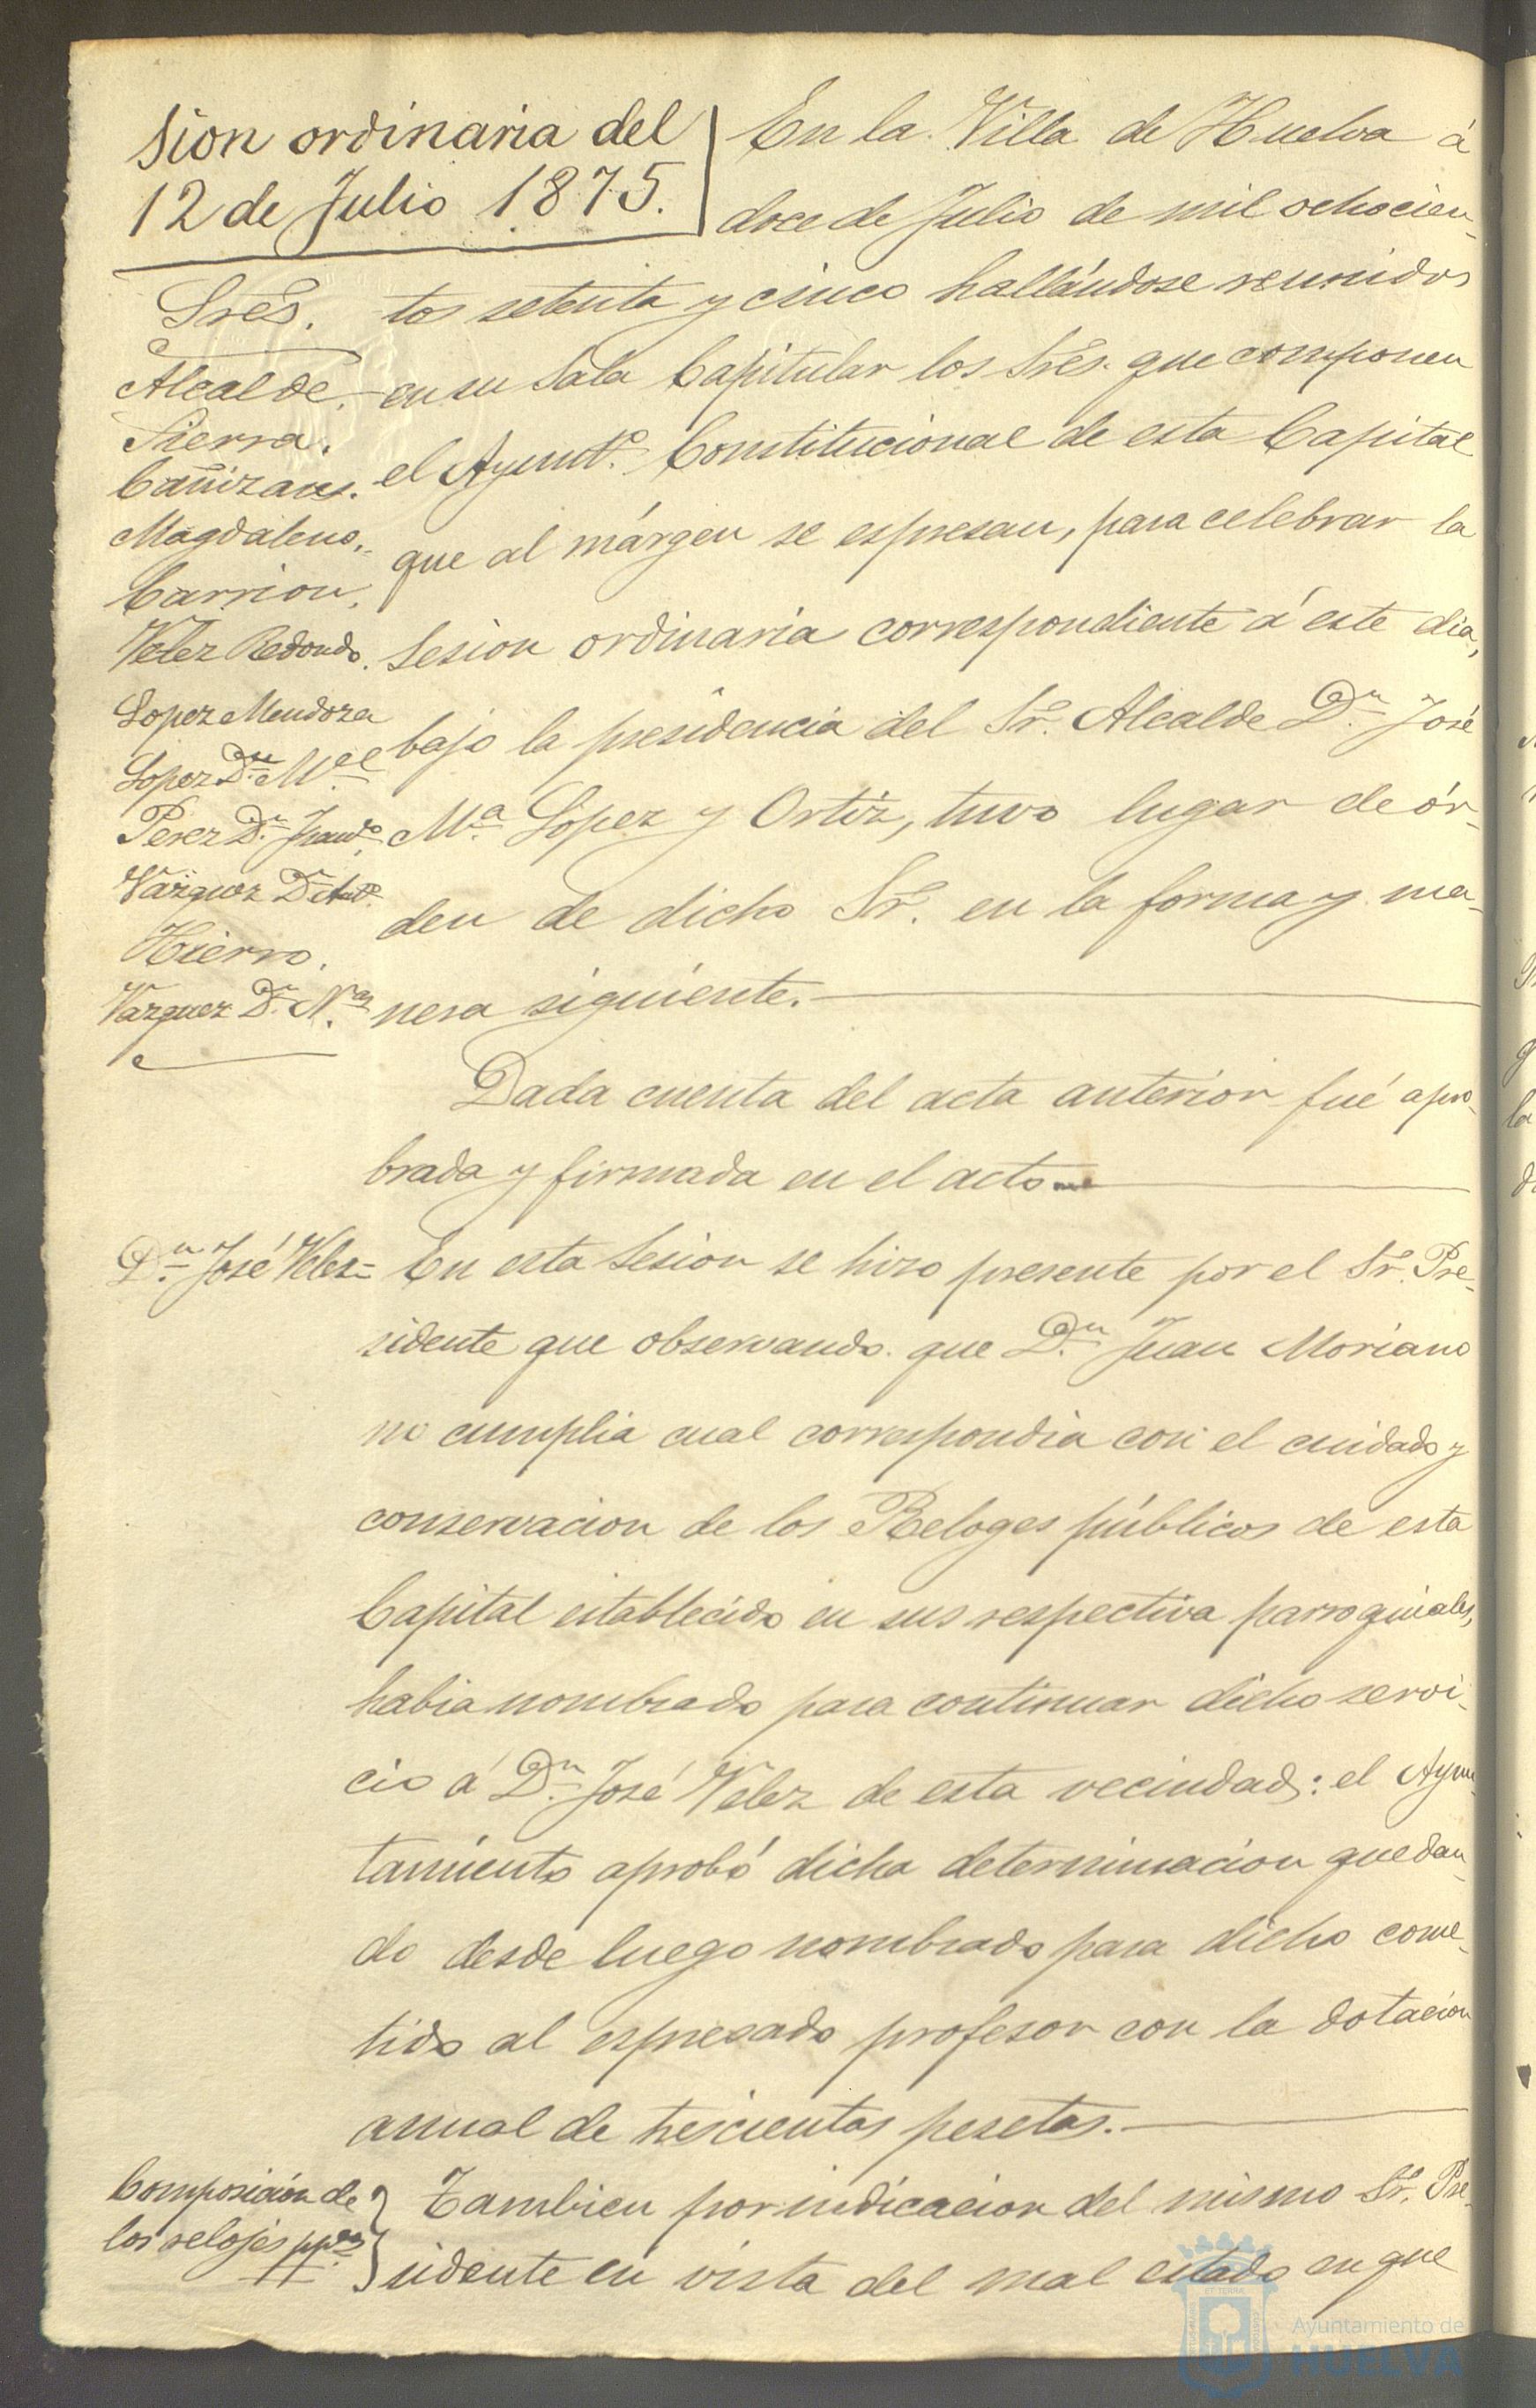 Sion ordinaria del
12 de Julio 1875.
Sres.
Alcalde.
Sierra.
Cañizares.
Magdaleno.
Carrion.
Velez Redondo.
Lopez Mendoza
Lopez Dn. Ml
Perez Dn. Franco.
Vazquez Dn Anto.
Hierro.
Vazquez Dn. N.
En la Villa de Huelva á
doce de Julio de mil ochocien-
tos setenta y cinco hallándose reunidos
en su Sala Capitular los Sres. que componen
el Ayuntº. Constitucional de esta Capital
que al márgen se espresan, para celebrar la
Sesion ordinaria correspondiente á este dia,
bajo la presidencia del Sr. Alcalde Dn. José
Mª. López y Ortiz, tuvo lugar de ór-
den de dicho Sr. en la forma y ma-
nera siguiente.
Dada cuenta del acta anterior fué apro-
brada y firmada en el acto
Dn. José Velez=
En esta Sesion se hizo presente por el Sr. Pre-
sidente que observando que Dn. Juan Moriano
no cumplia cual correspondia con el cuidado y
conservacion de los Reloges públicos de esta
Capital establecido en sus respectiva parroquiales,
habia nombrado para continuar dicho servi-
cio á Dn. José Velez de esta vecindad: el Ayun-
tamiento aprobó dicha determinacion quedan-
do desde luego nombrado para dicho come-
tido al espresado profesor con la dotacion
anual de trescientas pesetas.
Composición de
los relojes ppcos.
Tambien por indicacion del mismo Sr. Pre-
sidente en vista del mal estado en que
Ayuntamiento de
HUELVA